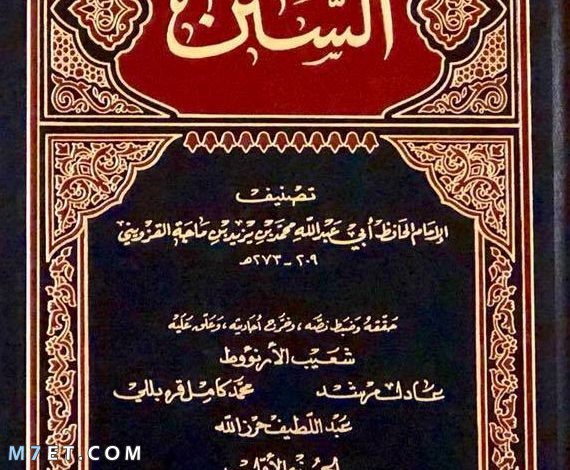 السنن
تصنيف
الإمام الحافظ أبي عبد الله محمد بن يزيد بن ماجة القزويني
٢٠٩ - ٢٧٣ هـ
حققه وضبط نصه، وخرج أحاديثه، وعلق عليه
شعيب الأرنؤوط
عادل مرشد محمد كامل قره بللي
عبد اللطيف حرز الله
الجزء الأول
M7ET.COM